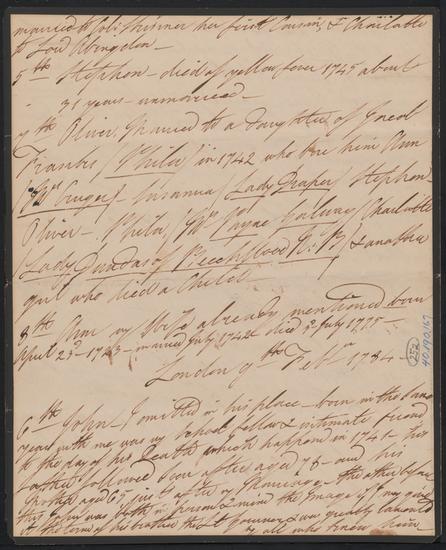 married to Coll. Skinner her first Cousin, & Charlotte
to Lord Abingdon.
5th Stephen - died of yellow fever 1745 about
- 31 years - unmarried -
7th Oliver, Married to a daughter of Jacob
Franks (Phila) in 1742 who bore him Ann
(Mrs Cruger) - Susanna (Lady Draper) Stephen
Oliver - Phila (Mrs Payne Galwey) Charlotte
(Lady Dundas of Beechwood N: B) & another
girl who died a Child.
8th Ann my Wife already mentioned born
April 23d 1723 - married July 1742 died 3d July 1775
London 9th Feb 1784
6th John - I omitted in his place - born in the same
year with me was my School fellow & intimate friend
to the day of his Death which happened in 1741 - his
father followed soon after aged 78 - and his
mother aged 69 just after of Pleurisy - the other by
this John was both in person & mind the Image of
his brother the & was greatly lamented
by all who knew him
252
40.190.167